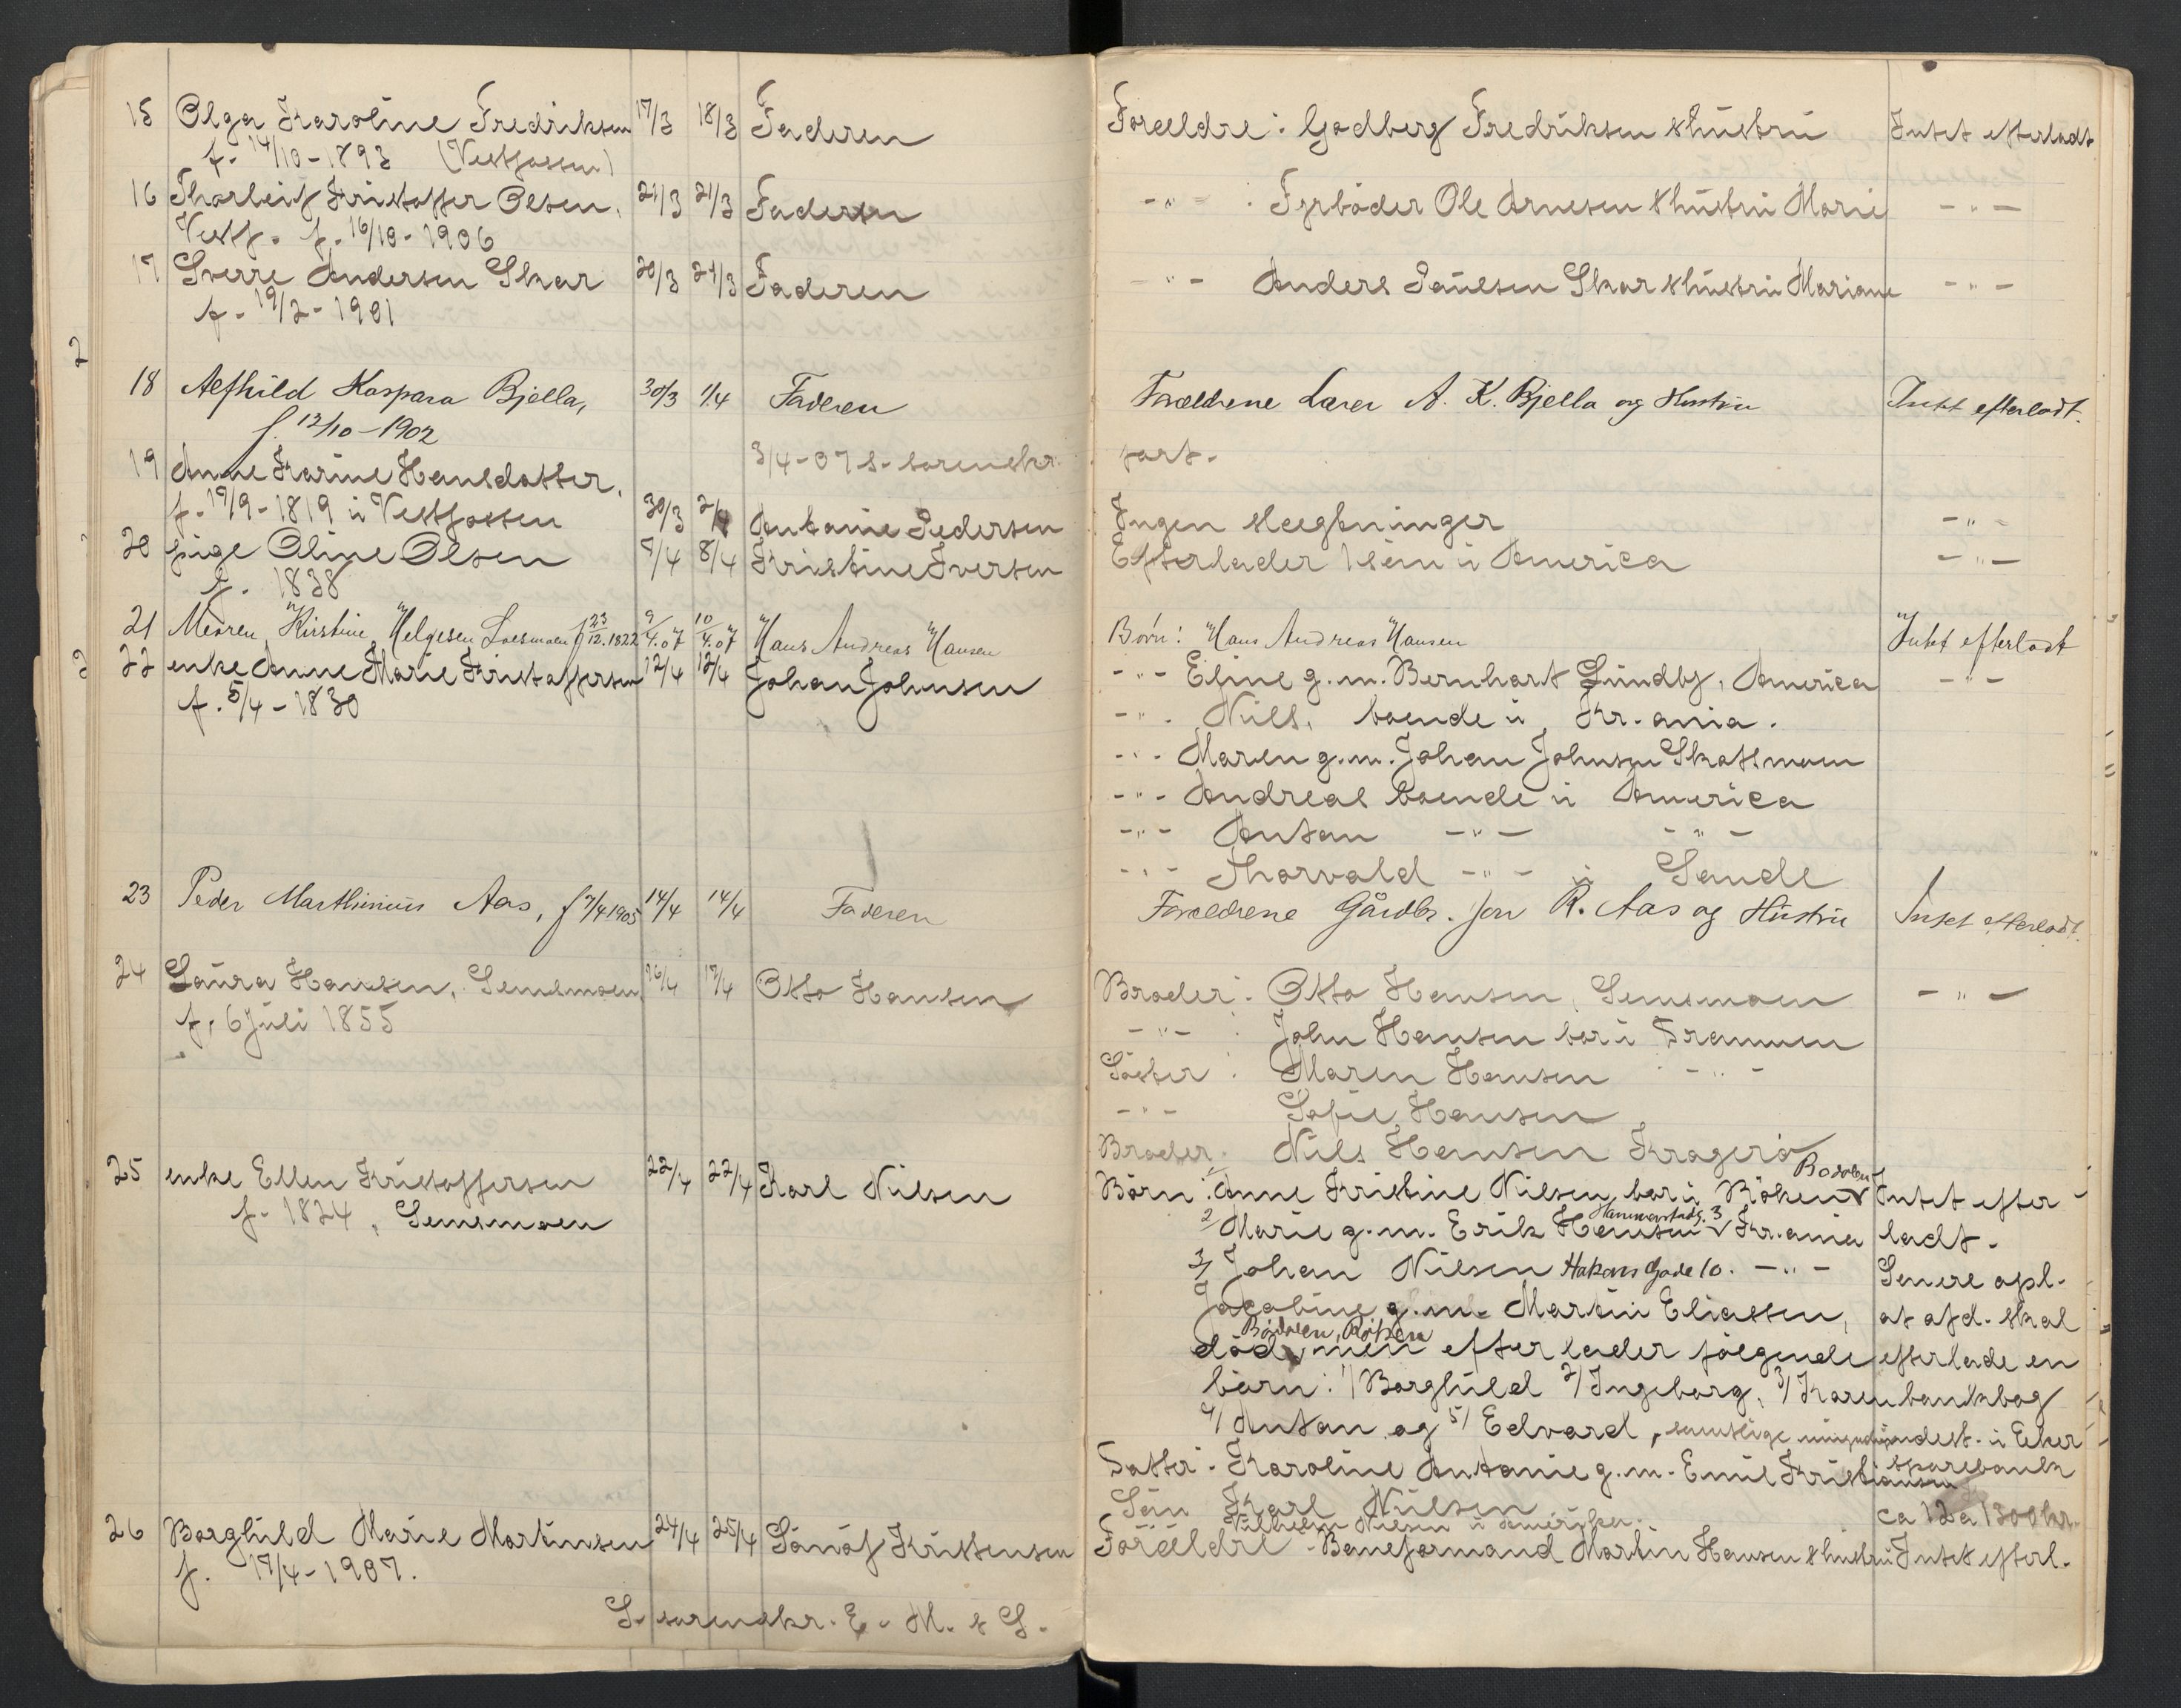 15 Olga Karoline Fredriksen 17/3 18/3 Faderen Forældre: Godberg Fredriksen & hustru Intet efterladt
f. 14/10-1893 (Vestfossen)
16 Thorleif Kristoffer Olsen, 21/3 21/3 Faderen -"- : Fyrböder Ole Arnesen & hustru Marie -"-
Vestf. f. 16/10-1906
17 Sverre Andersen Skar 20/3 21/3 Faderen -"- Anders Paulsen Skar & hustru Mariane -"-
f. 19/2-1901
2
18 Alfhild Kaspara Bjella, 30/3 1/4 Faderen Forældrene Lærer A. K. Bjella og Hustru Intet efterladt.
f. 12/10-1902
3/4-07 S. sorenskr. port.
19 Anne Karine Hansdatter,
f. 19/9-1819 i Vestfossen 30/3 2/4 Antonie Pedersen Ingen slægtninger -"-
20 pige Oline Olsen 7/4 8/4 Kristine Iversen Efterlader 1 sön i America -"-
f. 1838
21 Meøren, Kirstine Helgesen Loesmoen f 23/12.1822 9/4.07 10/4.07 Hans Andreas Hansen Børn: Hans Andreas Hansen Intet efterladt
22 enke Anne Marie Kristoffersen 12/4 12/4 Johan Johnsen -"- Eline g.m. Bernhart Lundby, America -"-
f. 5/4-1830 -"- Nils, boende i Kr.ania.
-"- Maren g.m. Johan Johnsen Skotsmoen
-"- Andreas boende i America
-"- Anton -"- -"-
-"- Thorvald -"- i Sande
23 Peder Marthinius Aas, f 7/4 1905 14/4 14/4 Faderen Forældrene Gårdbr. Jon R. Aas og Hustru Intet efterladt.
24 Laura Hansen, Semsmoen, 16/4 17/4 Otto Hansen Broder: Otto Hansen, Semsmoen -"-
f. 6 Juli 1855 -"- : John Hansen bor i Drammen
Söster : Maren Hansen -"-
-"- Sofie Hansen
Broder: Nils Hansen Kragerö
25 enke Ellen Kristoffersen 22/4 22/4 Karl Nilsen Börn: 1/ Anne Kristine Nilsen, bor i Röken Bödalen Intet efter-
f. 1824, Semsmoen 2/ Marie g.m. Erik Hansen Hammerstadg. 3 Kr.ania ladt.
3/ Johan Nilsen Hakons Gade 10. -"- Senere opl.
4/ Jacobine g.m. Martin Eliassen, at afd. skal
Bödalen, Röken
död, men efterlader fölgende efterlade en
börn: 1/ Borghild 2/ Ingeborg, 3/ Karen bankbog
4/ Anton og 5/ Edvard, samtlige mindst. i Eker
Datter: Karoline Antonie g.m. Emil Kristiansen Sparebank
Sön Karl Nilsen ca 12 a 1300 kr.
Vilhelm Nilsen i Amerika.
26 Borghild Marie Martinsen 24/4 25/4 Gunöf Kristensen Forældre - Baneformand Martin Hansen & hustru Intet efterl.
f. 17/4-1907.
S. sorenskr. E. M. & S.